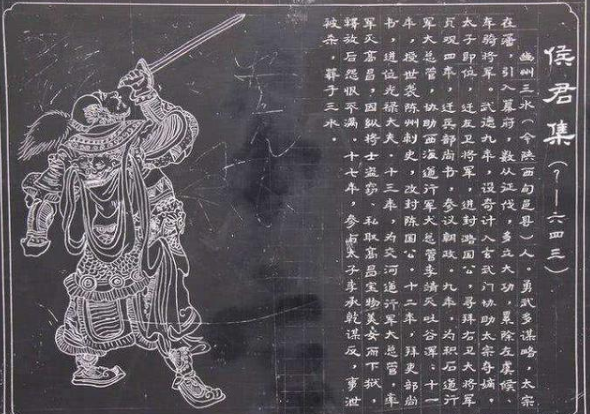 侯君集(?—六四三)
豳州三水(今陕西旬邑县)人。勇武多谋略,太宗
在藩,引入幕府,数从征伐,多立大功,累除左虞候、
车骑将军。武德九年,设奇计入玄武门协助太宗夺嫡,
太子即位,迁左卫将军,进封潞国公,寻拜右卫大将军
贞观四年,迁兵部尚书,参议朝政。九年,为积石道行
军大总管,协助西海道行军大总管李靖灭吐谷浑。十一
年,授世袭陈州刺史,改封陈国公。十二年,拜吏部尚
书,进位光禄大夫。十三年,为交河道行军大总管,率
军灭高昌,因纵将士盗窃,私取高昌宝物美女而下狱,
释放后怨恨不满。十七年,参与太子李承乾谋反,事泄
被杀,葬于三水。